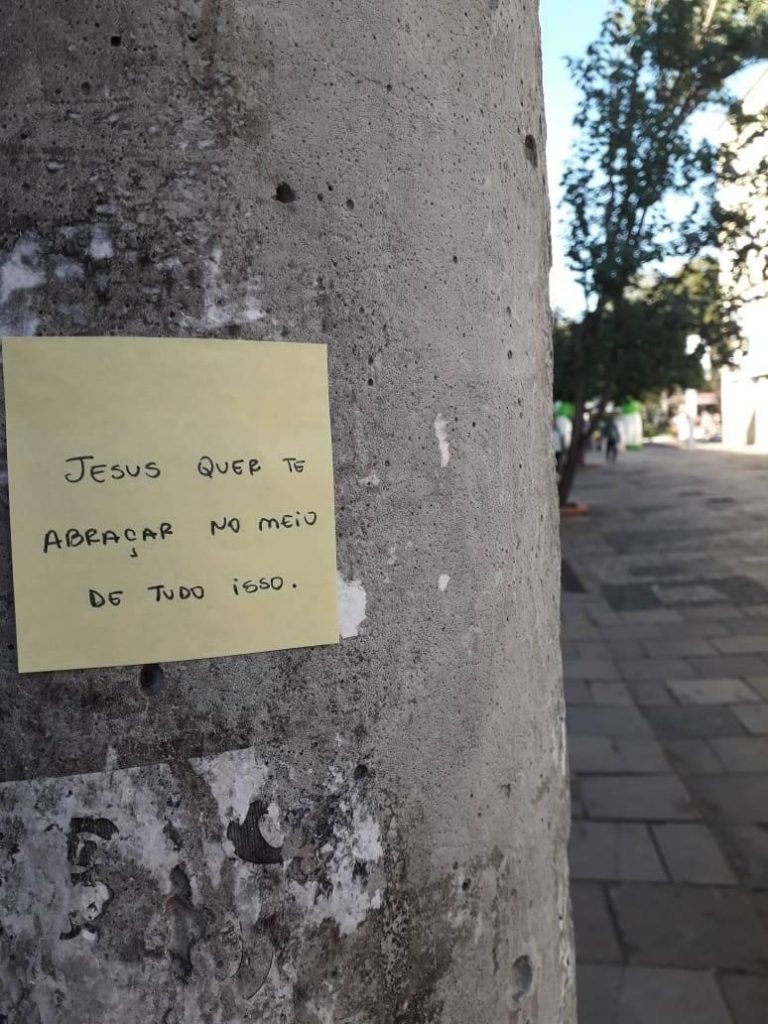 JESUS QUER TE
ABRAÇAR NO MEIO
DE TUDO ISSO.